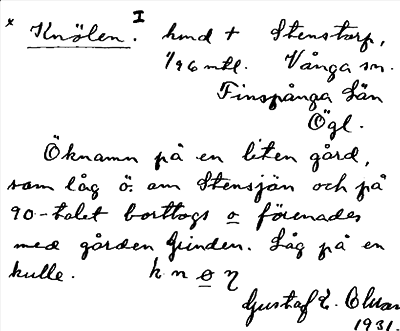 × Knölen. I hmd t Stenstorp,
1/96 mtl. Vånga sn.
Finspånga Län
Ögl.
Öknamn på en liten gård,
som låg ö. om Stensjön och på
90-talet borttogs o förenades
med gården Grinden. Låg på en
kulle. k n ø η
Gustaf E. Olsson
1931.